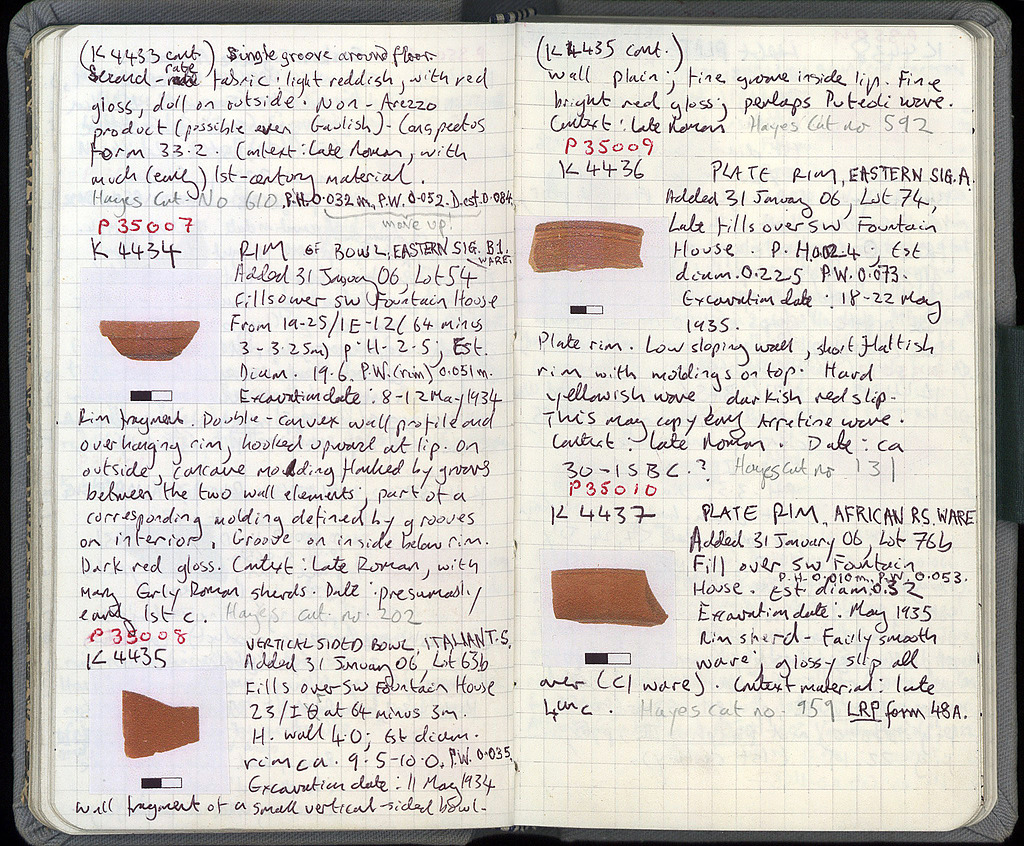 (K 4433 cont) Single groove around floor.
Second-rate fabric: light reddish, with red
gloss, dull on outside. Non-Arezzo
product (possible even Gaulish) - Conspectus
Form 33.2. Context: Late Roman, with
much (early) 1st-century material.
Hayes Cat. No 610, P.H. 0.032 m, P.W. 0.052. D.est 0.084.
move up.
P 35007
K 4434 RIM OF BOWL, EASTERN SIG. B1.
WARE.
Added 31 January 06, Lot 54
Fills over SW Fountain House
From 19-25/IE-12 (64 minus
3-3.25m) P.H-2.5; Est.
Diam. 19.6. P.W. (rim) 0.051m.
Excavation date: 8-12 May 1934
Rim fragment. Double-convex wall profile and
overhanging rim, hooked upward at lip. On
outside, concave molding flanked by grooves
between the two wall elements; part of a
corresponding molding defined by grooves
on interior. Groove on inside below rim.
Dark red gloss. Context: Late Roman, with
many Early Roman sherds. Date: presumably
early 1st c. Hayes cat. no. 202
P 35008
K 4435 VERTICAL SIDED BOWL, ITALIAN T.S.
Added 31 January 06, Lot 63b
Fills over SW Fountain House
23/IΘ at 64 minus 3m.
H. wall 4.0; Est diam.
rim ca. 9.5-10.0. P.W. 0.035.
Excavation date: 11 May 1934
Wall fragment of a small vertical-sided bowl-
(K 4435 cont.)
wall plain; fine groove inside lip. Fine
bright red gloss; perhaps Puteoli ware.
Context: Late Roman Hayes Cat no 592
P 35009
K 4436 PLATE RIM, EASTERN SIG. A.
Added 31 January 06, Lot 74,
Late fills over SW Fountain
House. P.H. 0.024, Est
diam. 0.225 P.W. 0.073.
Excavation date: 18-22 May
1935.
Plate rim. Low sloping wall, short flattish
rim with moldings on top. Hard
yellowish ware, darkish red slip.
This may copy early Arretine ware.
Context: Late Roman. Date: ca
30-15 BC.? Hayes cat no. 131
P 35010
K 4437 PLATE RIM, AFRICAN R.S. WARE
Added 31 January 06, Lot 76b
Fill over SW Fountain
P.H. 0.010 m. P.W. 0.053.
House. Est diam 0.32
Excavation date: May 1935
Rim sherd - Fairly smooth
ware; glossy slip all
over (C1 ware). Context material: late
4th c. Hayes cat no. 959 LRP form 48A.